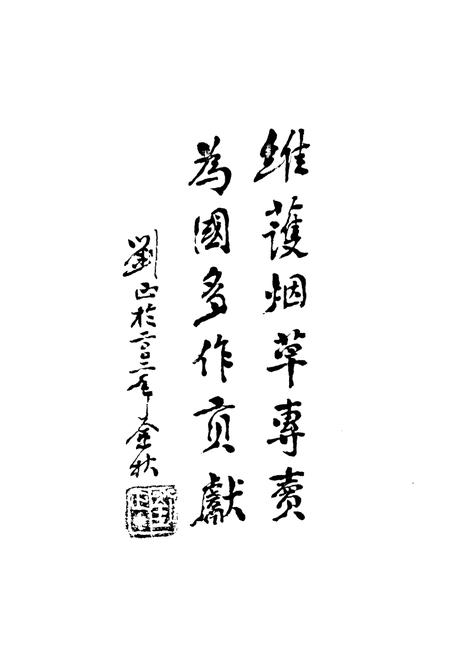 維護烟草專賣
為國多作貢獻
劉正於二〇〇二年金秋